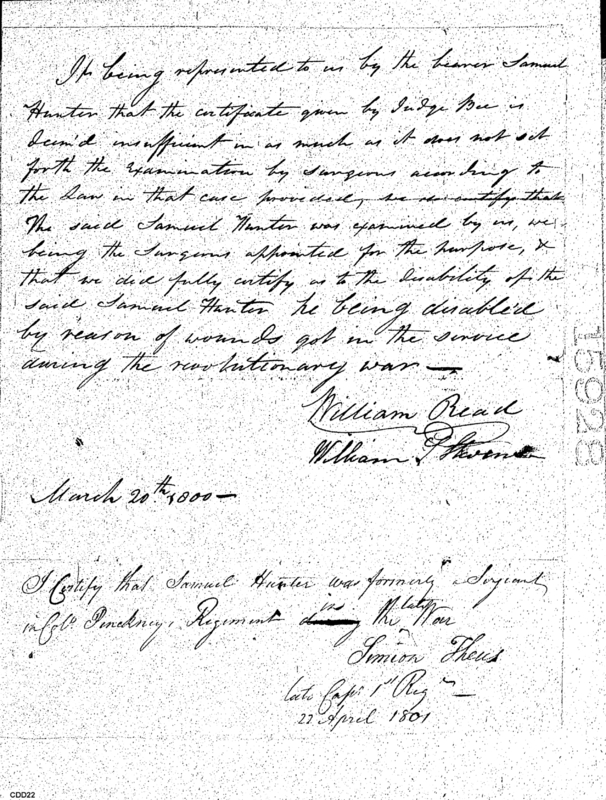 It being represented to us by the bearer Samuel
Hunter that the certificate given by Judge Bee is
deem'd insufficient in as much as it does not set
forth the Examination by Surgeons according to
the Law in that case provided, we do certify that
The said Samuel Hunter was examined by us, we
being the Surgeons appointed for the purpose, &
that we did fully certify as to the disability of the
said Samuel Hunter he being disable'd
by reason of wounds got in the service
during the revolutionary war —
William Read
William
March 20th 1800 —
I Certify that Samuel Hunter was formerly a Sergeant
in Colo. Pinckneys Regiment during in the late War
Simeon Theus
late Capt. 1st Regt —
22 April 1801
15928
CDD22